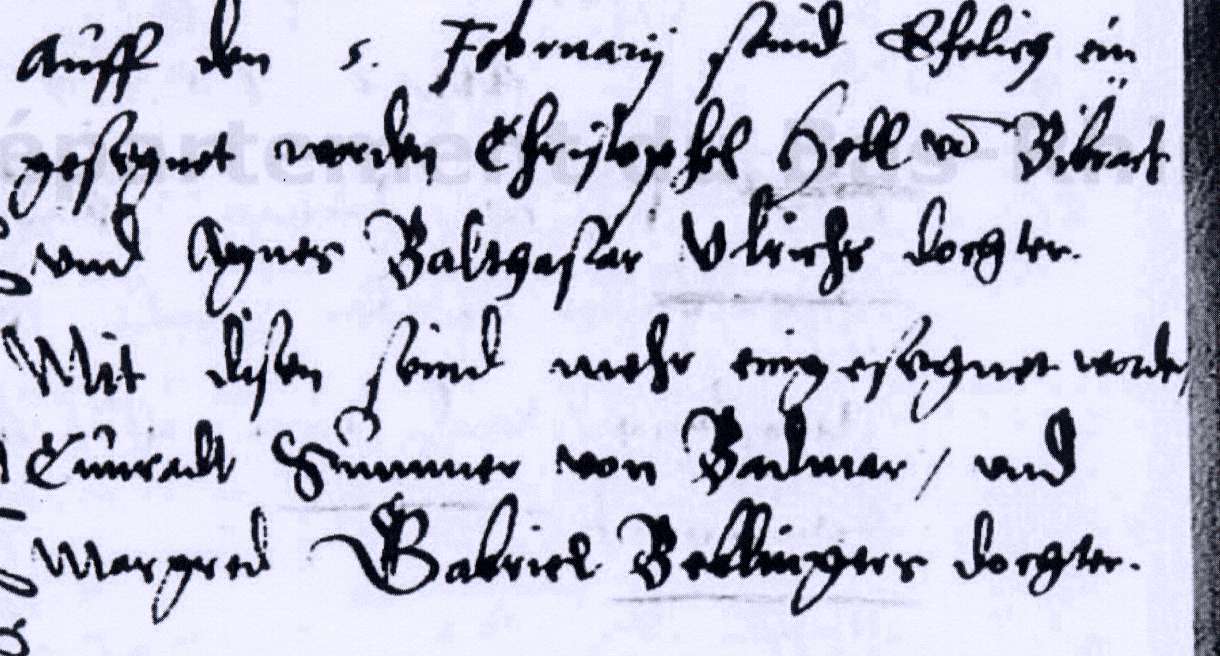 Auff den 5. Februarij seind Ehelich ein
gesegnet worden Christophel Hell vo Bibrach
vnd Agnes Balthasar Vlrichs dochter.
Mit disen seind mehr eingesegnet worde
Cunradt Summer von Badmar / vnd
Margred Gabriel Bellingers dochter.